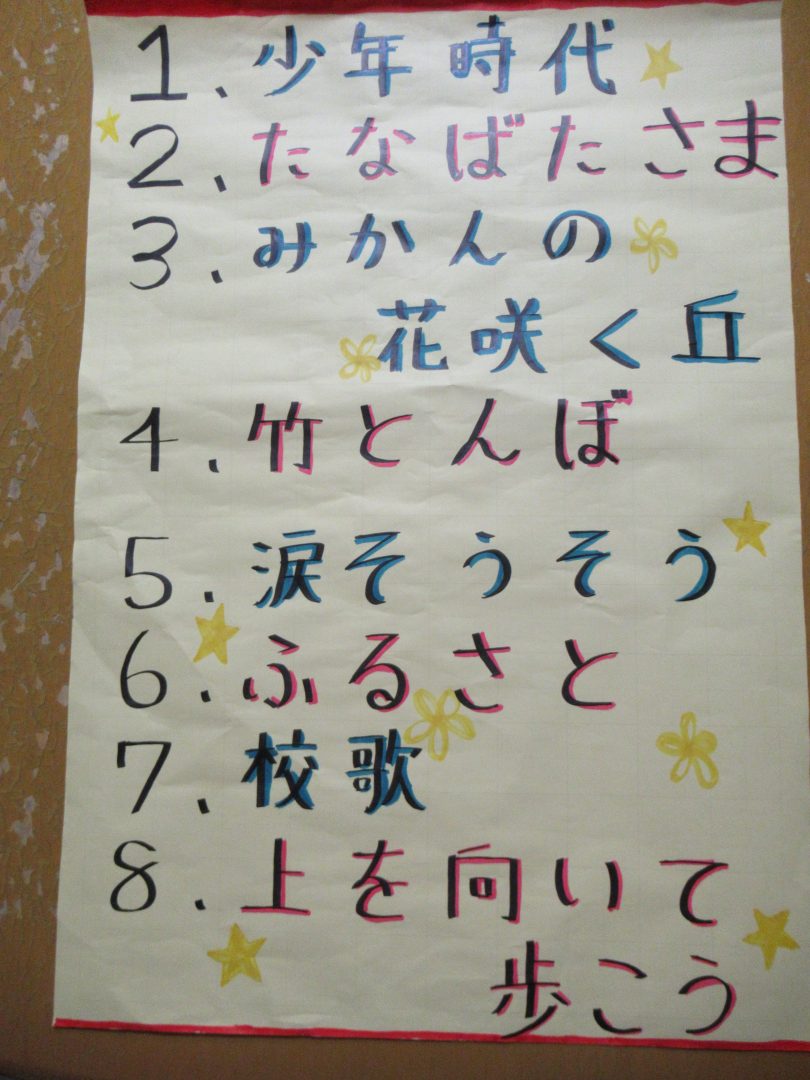 1、少年時代
2、たなばたさま
3、みかんの
花咲く丘
4、竹とんぼ
5、涙そうそう
6、ふるさと
7、校歌
8、上を向いて
歩こう